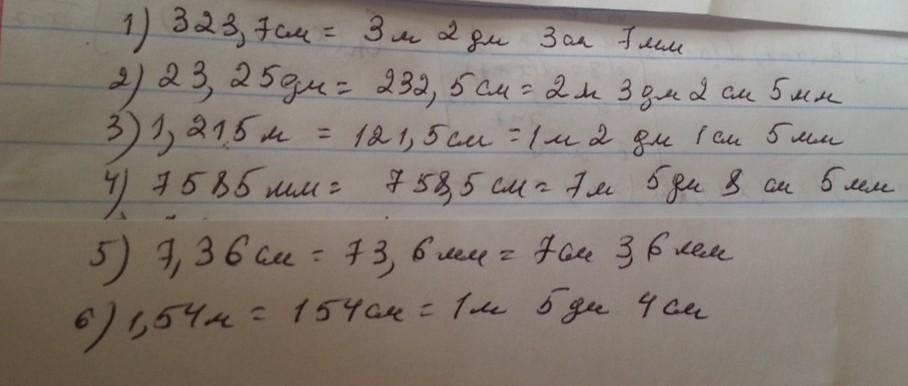 1) 323,7см = 3м 2дм 3см 7мм
2) 23,25дм = 232,5см = 2м 3дм 2см 5мм
3) 1,215м = 121,5см = 1м 2 дм 1см 5мм
4) 7585мм = 758,5 см = 7м 5дм 8 см 5мм
5) 7,36см = 73,6мм = 7см 3,6мм
6) 1,54м = 154см = 1м 5дм 4см